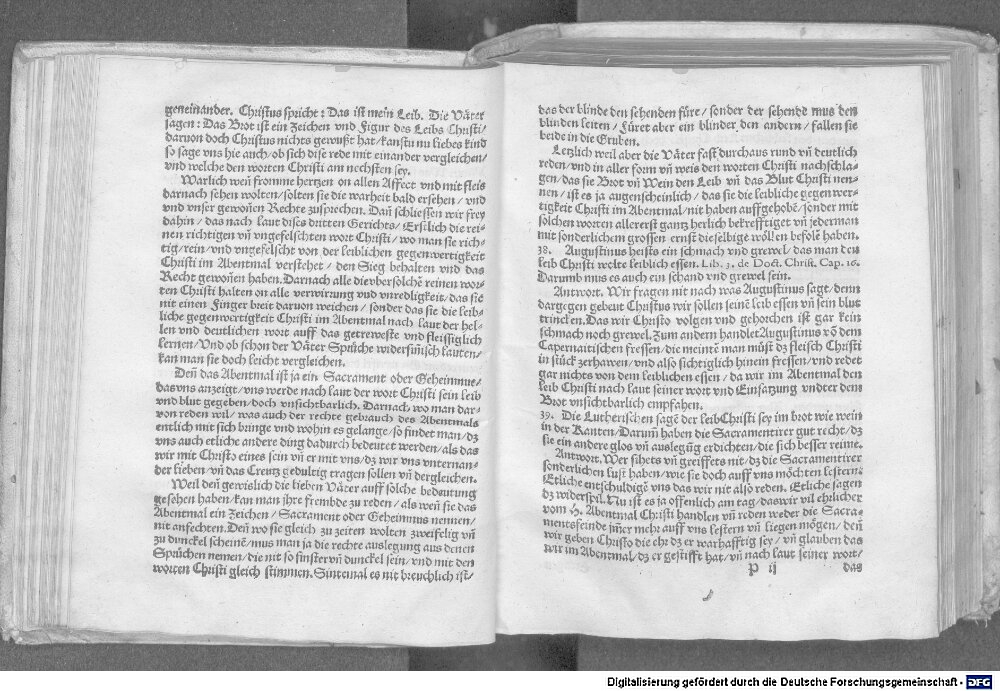 geneinander. Christus spricht: Das ist mein Leib. Die Väter
sagen: Das Brot ist ein Zeichen vnd Figur des Leibs Christi/
daruon doch Christus nichts gewußt hat/kanstu nu liebes kind
so sage vns hie auch/ob sich dise rede mit einander vergleichen/
vnd welche den worten Christi am nechsten sey.
Warlich weñ fromme hertzen on allen Affect vnd mit fleis
darnach sehen wolten/solten sie die warheit bald ersehen/vnd
vnd vnser gewoñen Rechte zusprechen. Dañ schliessen wir frey
dahin/das nach laut dises dritten Gerichts/Erstlich die rei-
nen richtigen vñ vngefelschten wort Christi/wo man sie rich-
tig/rein/vnd vngefelscht von der leiblichen gegenwertigkeit
Christi im Abentmal verstehet/den Sieg behalten vnd das
Recht gewoñen haben. Darnach alle die vber solche reinen wor-
ten Christi halten on alle verwirrung vnd vnredligkeit/das sie
nit einen Finger breit daruon weichen/sonder das sie die leib-
liche gegenwertigkeit Christi im Abentmal nach laut der hel-
len vnd deutlichen wort auff das getreweste vnd fleissiglich
lernen/Vnd ob schon der Väter Sprüche widersiñisch lauten/
kan man sie doch leicht vergleichen.
Deñ das Abentmal ist ja ein Sacrament oder Geheimnus/
das vns anzeigt/vns werde nach laut der wort Christi sein leib
vnd blut gegeben/doch vnsichtbarlich. Darnach wo man dar-
von reden wil/was auch der rechte gebrauch des Abentmals
entlich mit sich bringe vnd wohin es gelange/so findet man/dz
vns auch etliche andere ding dadurch bedeutet werden/als das
wir mit Christo eines sein vñ er mit vns/dz wir vns vnternan-
der lieben/vñ das Creutz gedultig tragen sollen vñ dergleichen.
Weil deñ gewislich die lieben Väter auff solche bedeutung
gesehen haben/kan man jhre frembde zu reden/als weñ sie das
Abentmal ein Zeichen/Sacrament oder Geheimnus nennen/
nit anfechten. Deñ wo sie gleich zu zeiten wolten zweifelig vñ
zu dunckel scheinē/mus man ja die rechte auslegung aus denen
Sprüchen nemen/die nit so finster vñ dunckel sein/vnd mit den
worten Christi gleich stimmen. Sintemal es nit breuchlich ist/
das der blinde den sehenden füre/sonder der sehende mus den
blinden leiten/Füret aber ein blinder den andern/fallen sie
beide in die Gruben.
Letzlich weil aber die Väter fast durchaus rund vñ deutlich
reden/vnd in aller form vñ weis den worten Christi nachschla-
gen/das sie Brot vñ Wein den Leib vñ das Blut Christi nen-
nen/ist es ja augenscheinlich/das sie die leibliche gegenwer-
tigkeit Christi im Abentmal/nit haben auffgehobē/sonder mit
solchen worten allererst gantz herlich bekrefftiget vñ jederman
mit sonderlichem grossen ernst dieselbige wöllen befolē haben.
38. Augustinus heists ein schmach vnd grewel/das man den
leib Christi wolte leiblich essen. Lib. 3. de Doct. Christ. Cap. 16.
Darumb mus es auch ein schand vnd grewel sein.
Antwort. Wir fragen nit nach was Augustinus sagt/denn
dargegen gebeut Christus wir sollen seinē leib essen vñ sein blut
trincken. Das wir Christo volgen vnd gehorchen ist gar kein
schmach noch grewel. Zum andern handlet Augustinus vō dem
Capernaitischen fressen/die meintē man müst dz fleisch Christi
in stück zerhawen/vnd also sichtiglich hinein fressen/vnd redet
gar nichts von dem leiblichen essen/da wir im Abentmal den
leib Christi nach laut seiner wort vnd Einsatzung vndter dem
Brot vnsichtbarlich empfahen.
39. Die Lutherischen sagē der leib Christi sey im brot wie wein
in der Kanten/Darum̃ haben die Sacramentirer gut recht/dz
sie ein andere glos vñ auslegūg erdichten/die sich besser reime.
Antwort. Wer sihets vñ greiffets nit/dz die Sacramentirer
sonderlichen lust haben/wie sie doch auff vns möchten lestern:
Etliche entschuldigē vns das wir nit also reden. Etliche sagen
dz widerspil. Nu ist es ja offentlich am tag/das wir vil ehrlicher
vom H. Abentmal Christi handlen vñ reden weder die Sacra-
mentsfeinde jm̃er mehr auff vns lestern vñ liegen mögen/deñ
wir geben Christo die ehr dz er warhafftig sey/vñ glauben das
wir im Abentmal/dz er gestifft hat/vñ nach laut seiner wort/
P ij das
Digitalisierung gefördert durch die Deutsche Forschungsgemeinschaft - DFG